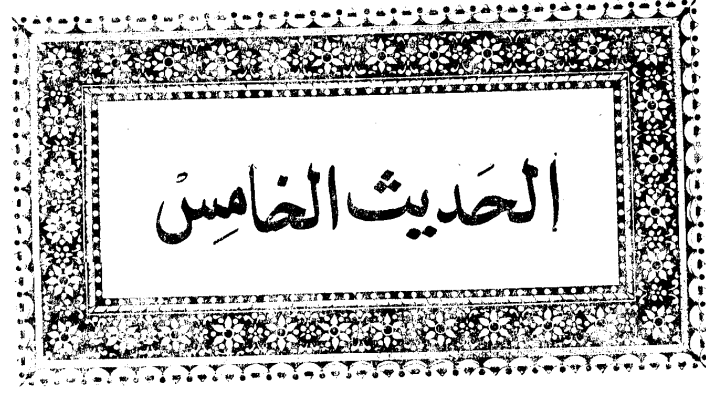 الحَديث الخامِسْ